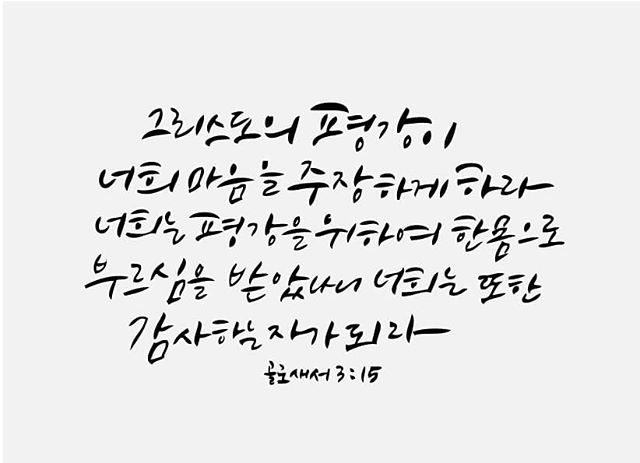 그리스도의 평강이
너희 마음을 주장하게 하라
너희는 평강을 위하여 한 몸으로
부르심을 받았나니 너희는 또한
감사하는 자가 되라
골로새서 3:15